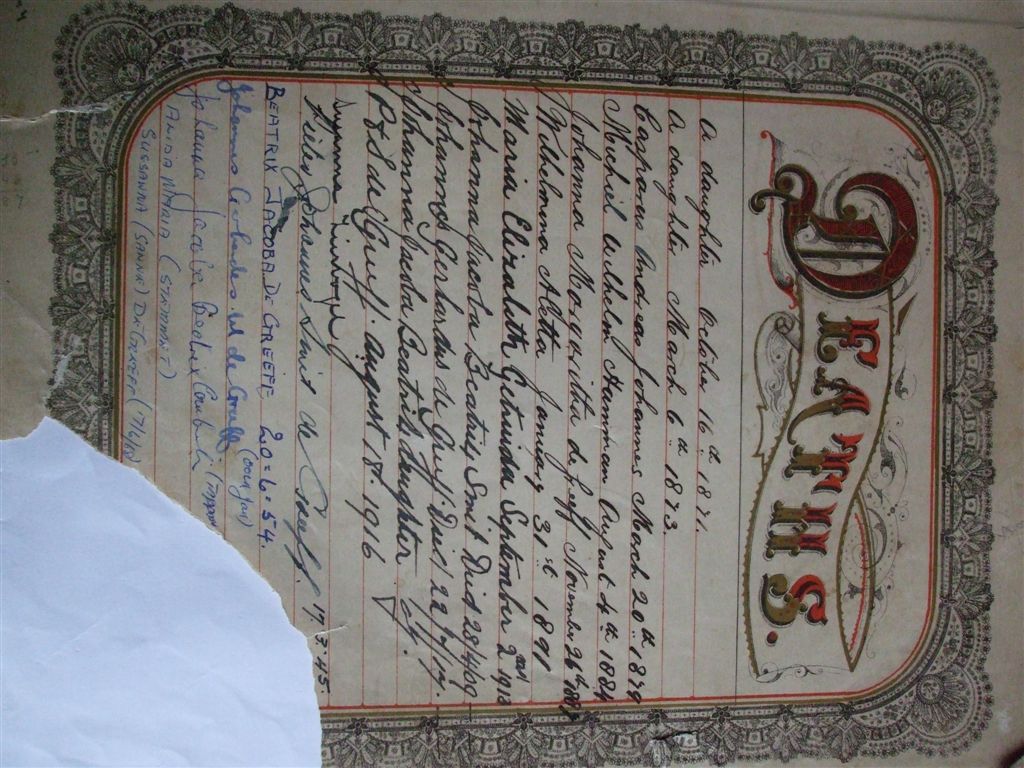 DEATHS.
A daughter October 16th 1871.
A daughter March 6th 1873.
Casparus Andreas Johannes March 20th 1879
Michiel Wilhelm Hamman August 4th 1884
Johanna Margaritha de Greeff November 26th
Wilhelmina Aletta January 31st 1891
Maria Elizabeth Getruida September 2nd 1913
Johanna Jacoba Beatrix Smit Died 28/4/09
Johannes Gerhardus de Greeff Died 22/
Johanna Jacoba Beatrix daughter of
P J S de Greeff. August 8. 1916
Johannes Smit de Greeff. 45.
BEATRIX JACOBA DE GREEFF 20-6-54.
Johannes Gerhardus de Greeff (oom Jan)
Johanna
ANIDA MARIA (STRIMONT)
SUSSANNA (SANNA DE GREEFF (17/6/